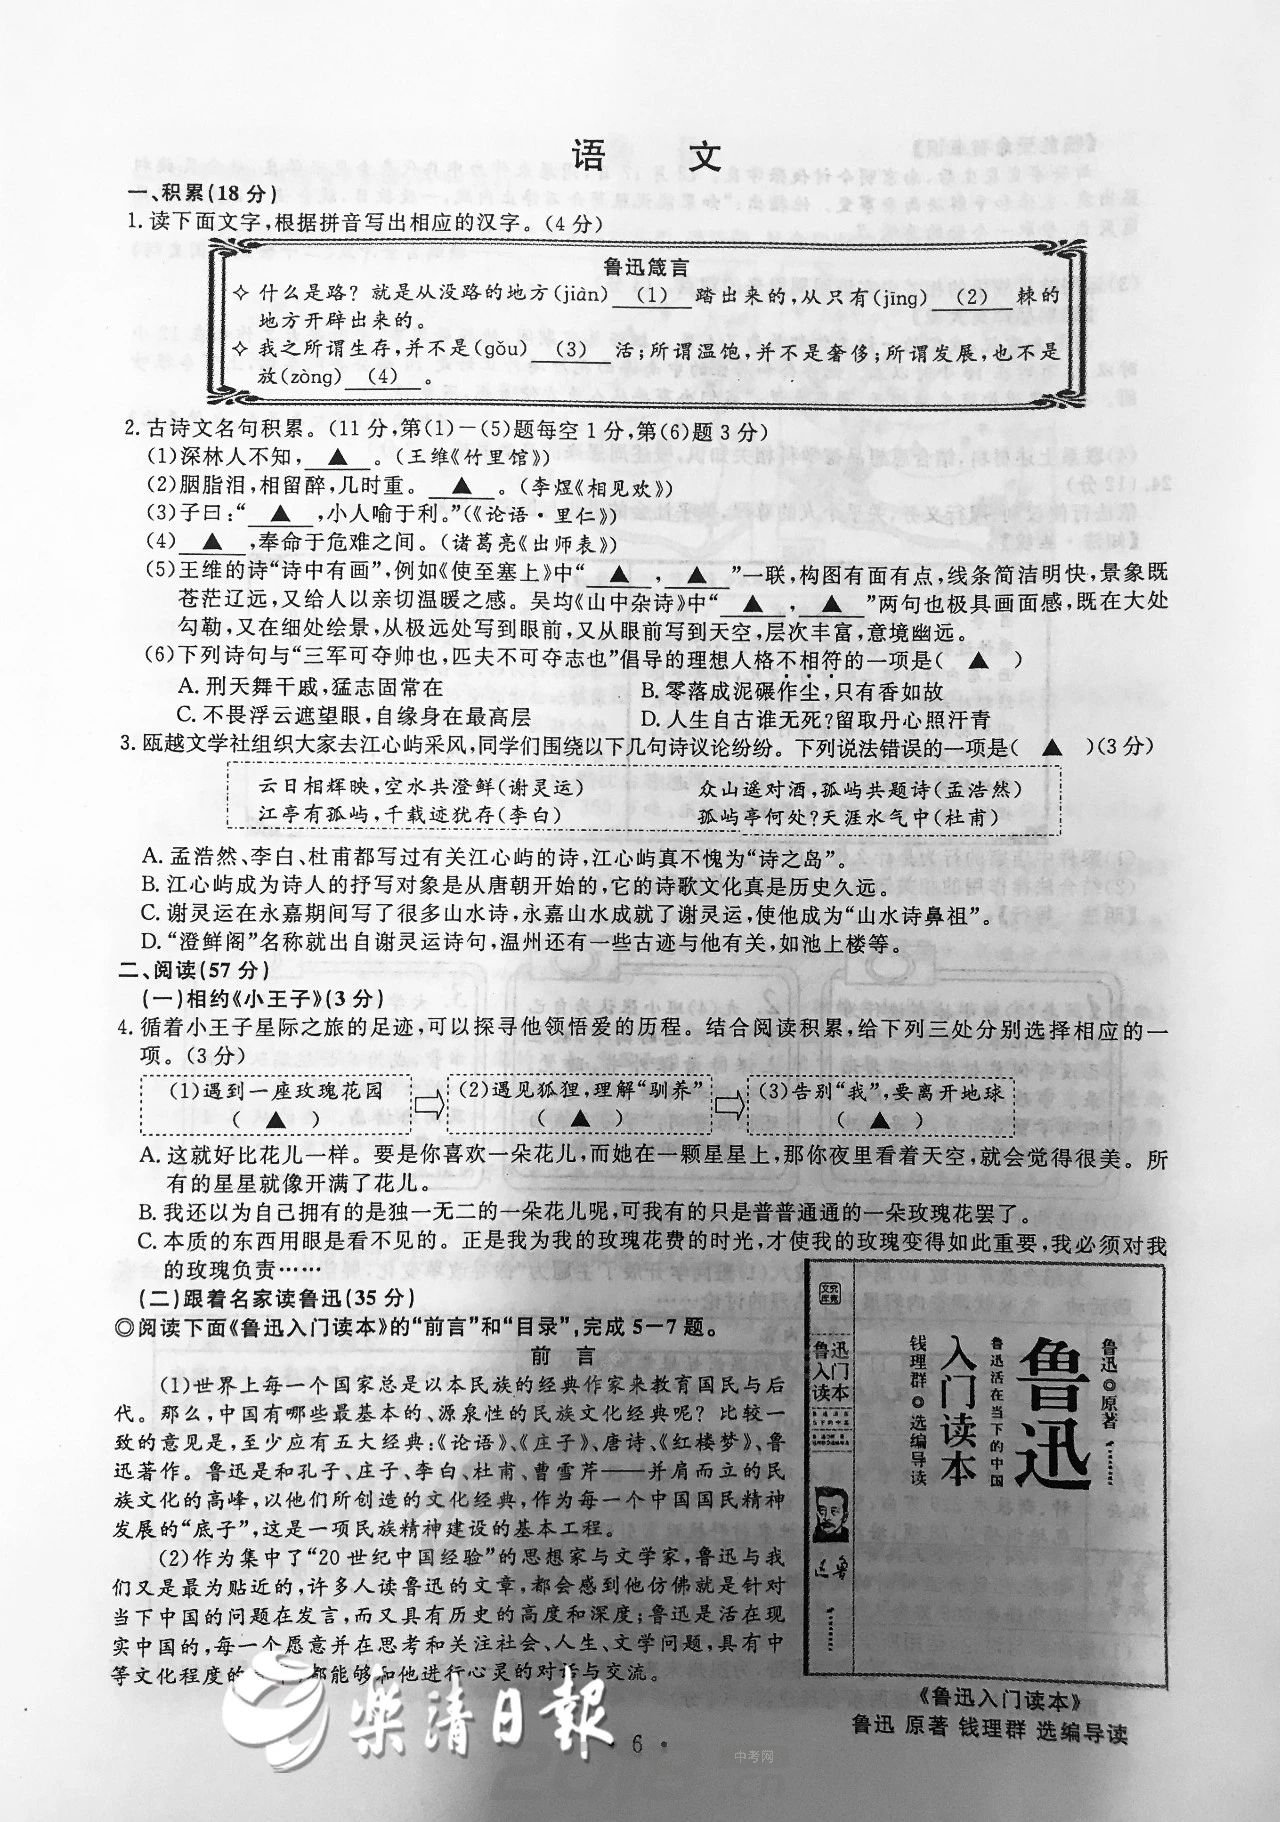 语 文
一、积累(18分)
1.读下面文字,根据拼音写出相应的汉字。(4分)
鲁迅箴言
✧ 什么是路？就是从没路的地方(jiàn) (1) 踏出来的,从只有(jīng) (2) 棘的
地方开辟出来的。
✧ 我之所谓生存,并不是(gǒu) (3) 活;所谓温饱,并不是奢侈;所谓发展,也不是
放(zòng) (4) 。
2.古诗文名句积累。(11分,第(1)-(5)题每空1分,第(6)题3分)
(1)深林人不知, ▲ 。(王维《竹里馆》)
(2)胭脂泪,相留醉,几时重。 ▲ 。(李煜《相见欢》)
(3)子曰:“ ▲ ,小人喻于利。”(《论语·里仁》)
(4) ▲ ,奉命于危难之间。(诸葛亮《出师表》)
(5)王维的诗“诗中有画”,例如《使至塞上》中“ ▲ , ▲ ”一联,构图有面有点,线条简洁明快,景象既
苍茫辽远,又给人以亲切温暖之感。吴均《山中杂诗》中“ ▲ , ▲ ”两句也极具画面感,既在大处
勾勒,又在细处绘景,从极远处写到眼前,又从眼前写到天空,层次丰富,意境幽远。
(6)下列诗句与“三军可夺帅也,匹夫不可夺志也”倡导的理想人格不相符的一项是( ▲ )
A.刑天舞干戚,猛志固常在 B.零落成泥碾作尘,只有香如故
C.不畏浮云遮望眼,自缘身在最高层 D.人生自古谁无死?留取丹心照汗青
3.瓯越文学社组织大家去江心屿采风,同学们围绕以下几句诗议论纷纷。下列说法错误的一项是( ▲ )(3分)
云日相辉映,空水共澄鲜(谢灵运) 众山遥对酒,孤屿共题诗(孟浩然)
江亭有孤屿,千载迹犹存(李白) 孤屿亭何处?天涯水气中(杜甫)
A.孟浩然、李白、杜甫都写过有关江心屿的诗,江心屿真不愧为“诗之岛”。
B.江心屿成为诗人的抒写对象是从唐朝开始的,它的诗歌文化真是历史久远。
C.谢灵运在永嘉期间写了很多山水诗,永嘉山水成就了谢灵运,使他成为“山水诗鼻祖”。
D.“澄鲜阁”名称就出自谢灵运诗句,温州还有一些古迹与他有关,如池上楼等。
二、阅读(57分)
(一)相约《小王子》(3分)
4.循着小王子星际之旅的足迹,可以探寻他领悟爱的历程。结合阅读积累,给下列三处分别选择相应的一
项。(3分)
(1)遇到一座玫瑰花园 (2)遇见狐狸,理解“驯养” (3)告别“我”,要离开地球
( ▲ ) ( ▲ ) ( ▲ )
A.这就好比花儿一样。要是你喜欢一朵花儿,而她在一颗星星上,那你夜里看着天空,就会觉得很美。所
有的星星就像开满了花儿。
B.我还以为自己拥有的是独一无二的一朵花儿呢,可我有的只是普普通通的一朵玫瑰花罢了。
C.本质的东西用眼是看不见的。正是我为我的玫瑰花费的时光,才使我的玫瑰变得如此重要,我必须对我
的玫瑰负责……
(二)跟着名家读鲁迅(35分)
◎阅读下面《鲁迅入门读本》的“前言”和“目录”,完成5-7题。
前 言
(1)世界上每一个国家总是以本民族的经典作家来教育国民与后
代。那么,中国有哪些最基本的、源泉性的民族文化经典呢？比较一
致的意见是,至少应有五大经典:《论语》、《庄子》、唐诗、《红楼梦》、鲁
迅著作。鲁迅是和孔子、庄子、李白、杜甫、曹雪芹——并肩而立的民
族文化的高峰,以他们所创造的文化经典,作为每一个中国国民精神
发展的“底子”,这是一项民族精神建设的基本工程。
(2)作为集中了“20世纪中国经验”的思想家与文学家,鲁迅与我
们又是最为贴近的,许多人读鲁迅的文章,都会感到他仿佛就是针对
当下中国的问题在发言,而又具有历史的高度和深度;鲁迅是活在现
实中国的,每一个愿意并在思考和关注社会、人生、文学问题,具有中
等文化程度的 都能够和他进行心灵的对话与交流。
鲁迅◎原著
鲁迅
鲁迅活在当下的中国
入门读本
钱理群◎选编导读
鲁迅
入门
读本
《鲁迅入门读本》
鲁迅 原著 钱理群 选编导读
乐清日報
6
中考网